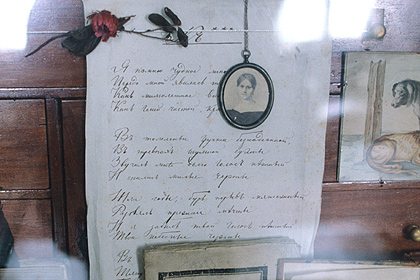 Я помню чудное
Передо мной явилась
Какъ мимолетное
Какъ геній чистой
Въ томленьи грусти безнадежной,
Въ тревогахъ шумной суеты,
Звучалъ мнѣ долго голосъ нѣжный
И снились милыя черты.
Шли годы. Бурь порывъ мятежный
Разсѣялъ прежнія мечты
И я забылъ твой голосъ нѣжный
Твои небесныя черты.
Въ